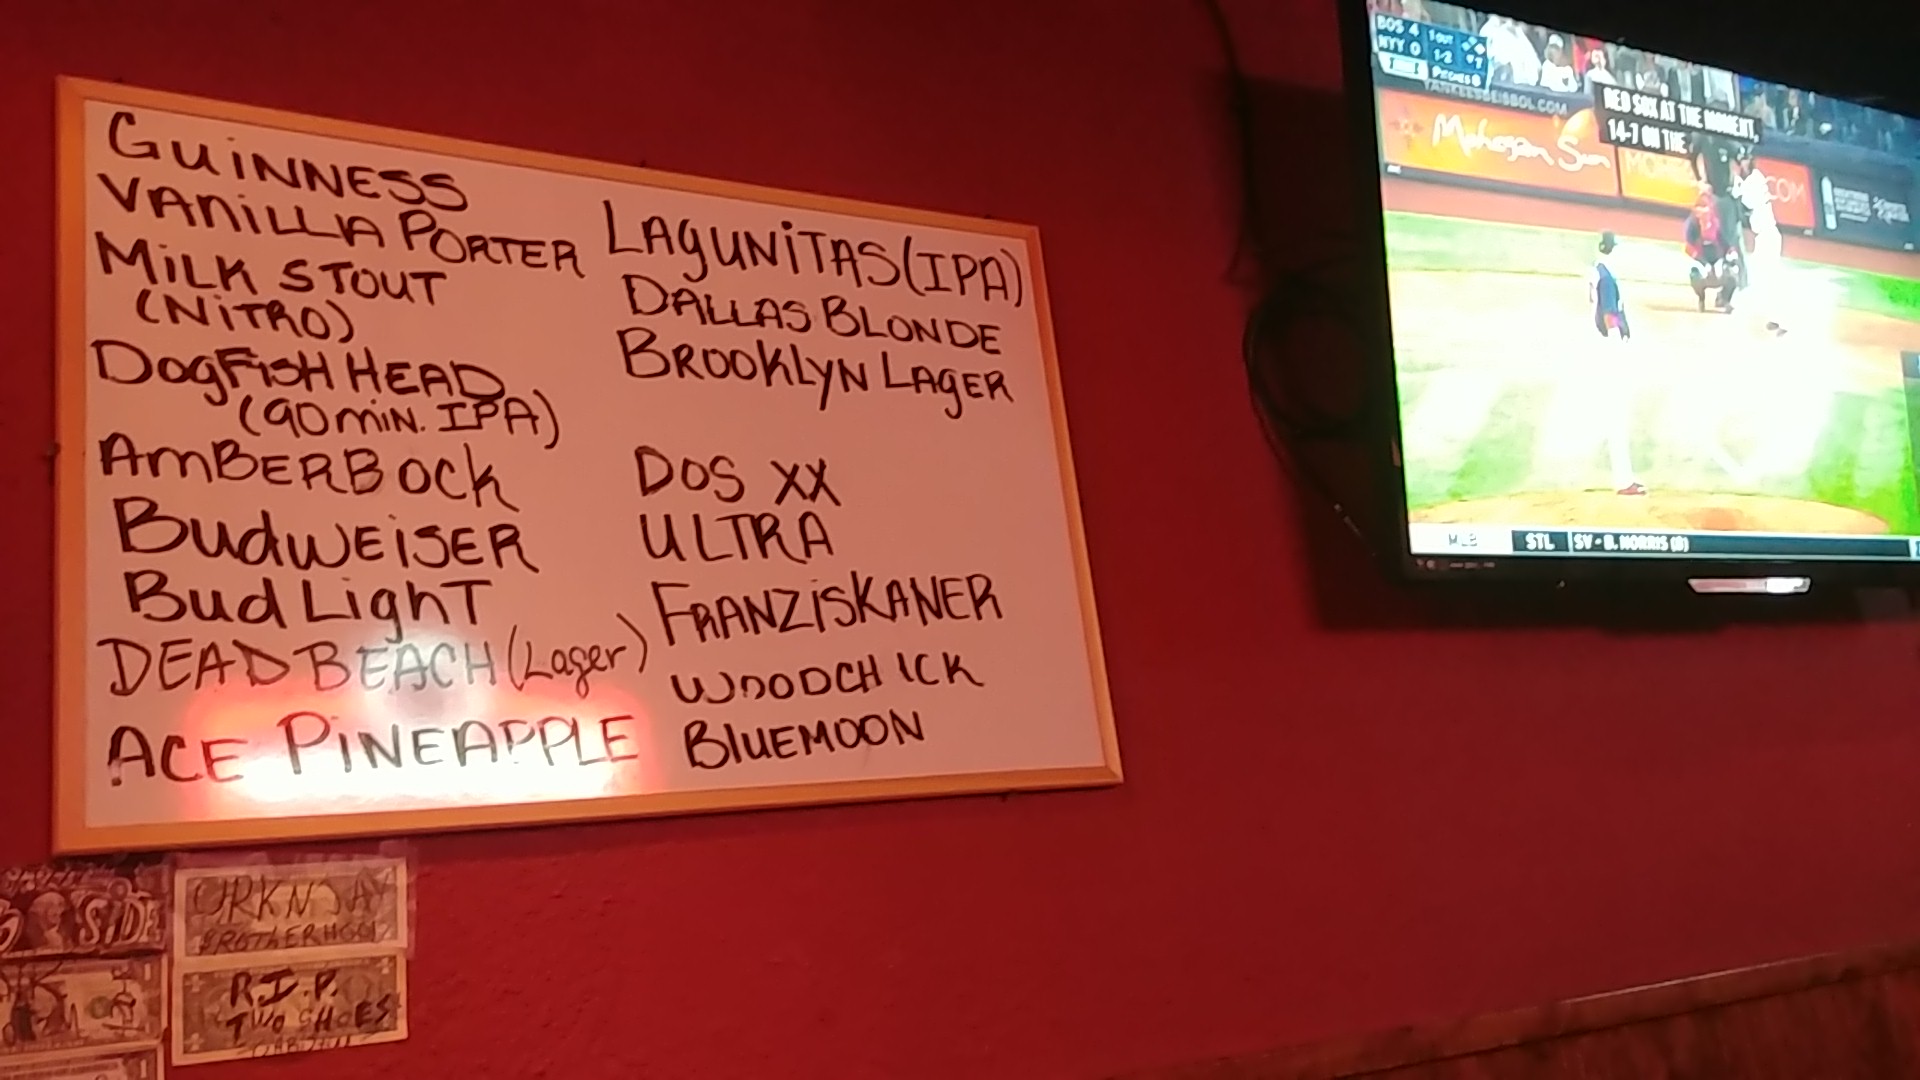 GUINNESS
VANILLA PORTER
MILK STOUT
(NITRO)
DOGFISH HEAD
(90 MIN. IPA)
AMBERBOCK
BUDWEISER
BUD LIGHT
DEAD BEACH (Lager)
ACE PINEAPPLE
LAGUNITAS (IPA)
DALLAS BLONDE
BROOKLYN LAGER
DOS XX
ULTRA
FRANZISKANER
WOODCHICK
BLUEMOON
BOS 4 1 OUT
NYY 0 1-2
YANKEESBEISBOL.COM
RED SOX AT THE MOMENT,
14-7 ON THE
Mohegan Sun
MLB STL SV - B. NORRIS (8)
SIDE
BROTHERHOOD
R.I.P.
TWO SHOES